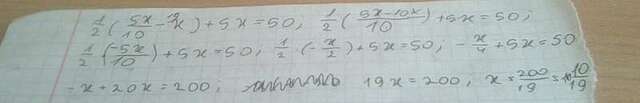 1/2 (5x/10 - x) + 5x = 50, 1/2 (5x-10x/10) + 5x = 50;
1/2 (-5x/10) + 5x = 50; 1/2 · (-x/2) + 5x = 50; -x/4 + 5x = 50
-x + 20x = 200; 19x = 200; x = 200/19 = 10 10/19